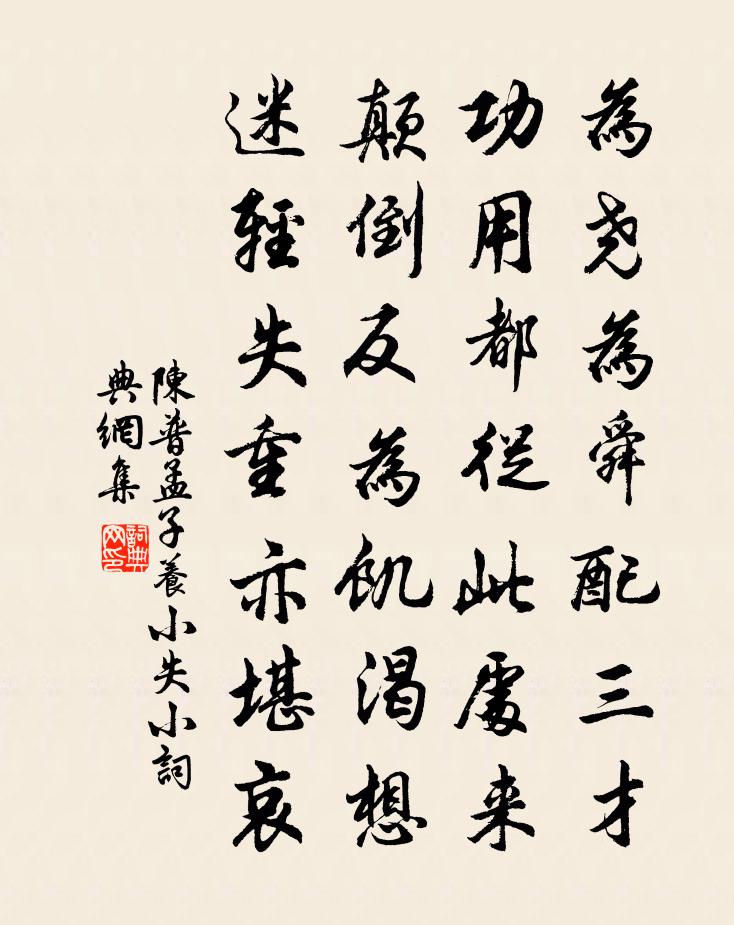 為尧為舜配三才
功用都從此處来
顛倒反為飢渴想
迷輕失重亦堪哀
陳普孟子養小失小詞
典網集
詞典
网印